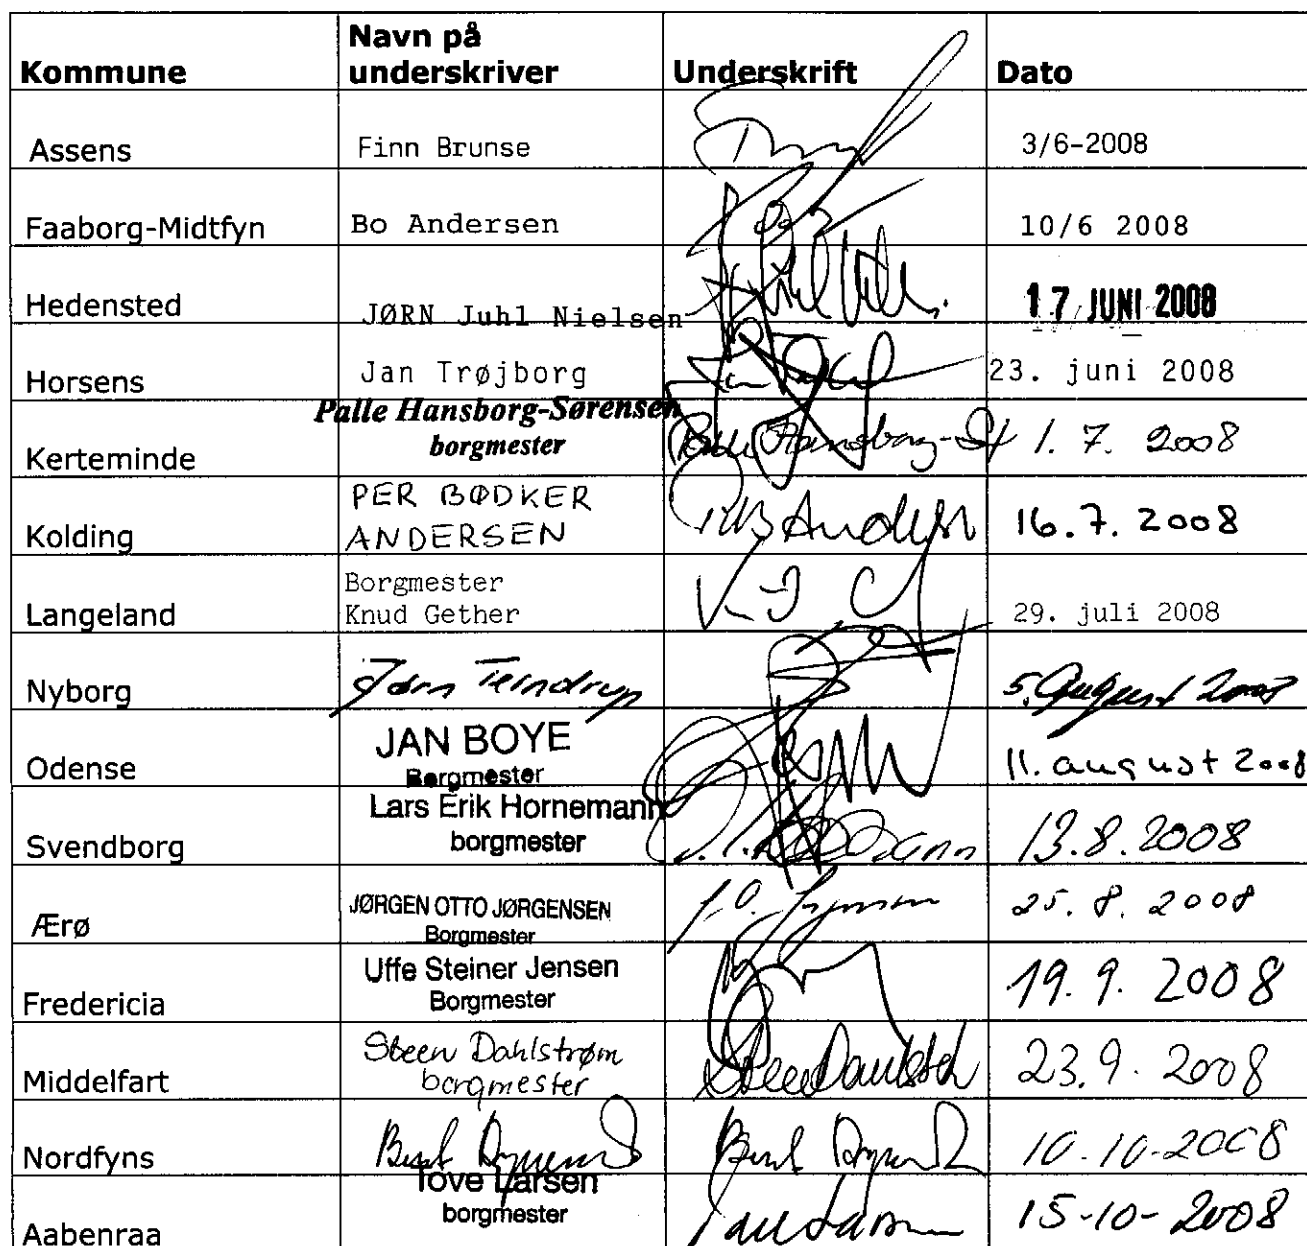 Kommune Navn på underskriver Underskrift Dato
Assens Finn Brunse 3/6-2008
Faaborg-Midtfyn Bo Andersen 10/6 2008
Hedensted JØRN Juhl Nielsen 17 JUNI 2008
Horsens Jan Trøjborg 23. juni 2008
Kerteminde Palle Hansborg-Sørensen borgmester Palle Hansborg-Sø 1. 7. 2008
Kolding PER BØDKER ANDERSEN 16.7.2008
Langeland Borgmester Knud Gether 29. juli 2008
Nyborg Jørn Terndrup 5. August 2008
Odense JAN BOYE Borgmester 11. august 2008
Svendborg Lars Erik Hornemann borgmester 13.8.2008
Ærø JØRGEN OTTO JØRGENSEN Borgmester 25. 8. 2008
Fredericia Uffe Steiner Jensen Borgmester 19. 9. 2008
Middelfart Steen Dahlstrøm borgmester 23.9. 2008
Nordfyns 10-10-2008
Aabenraa Tove Larsen borgmester 15-10-2008